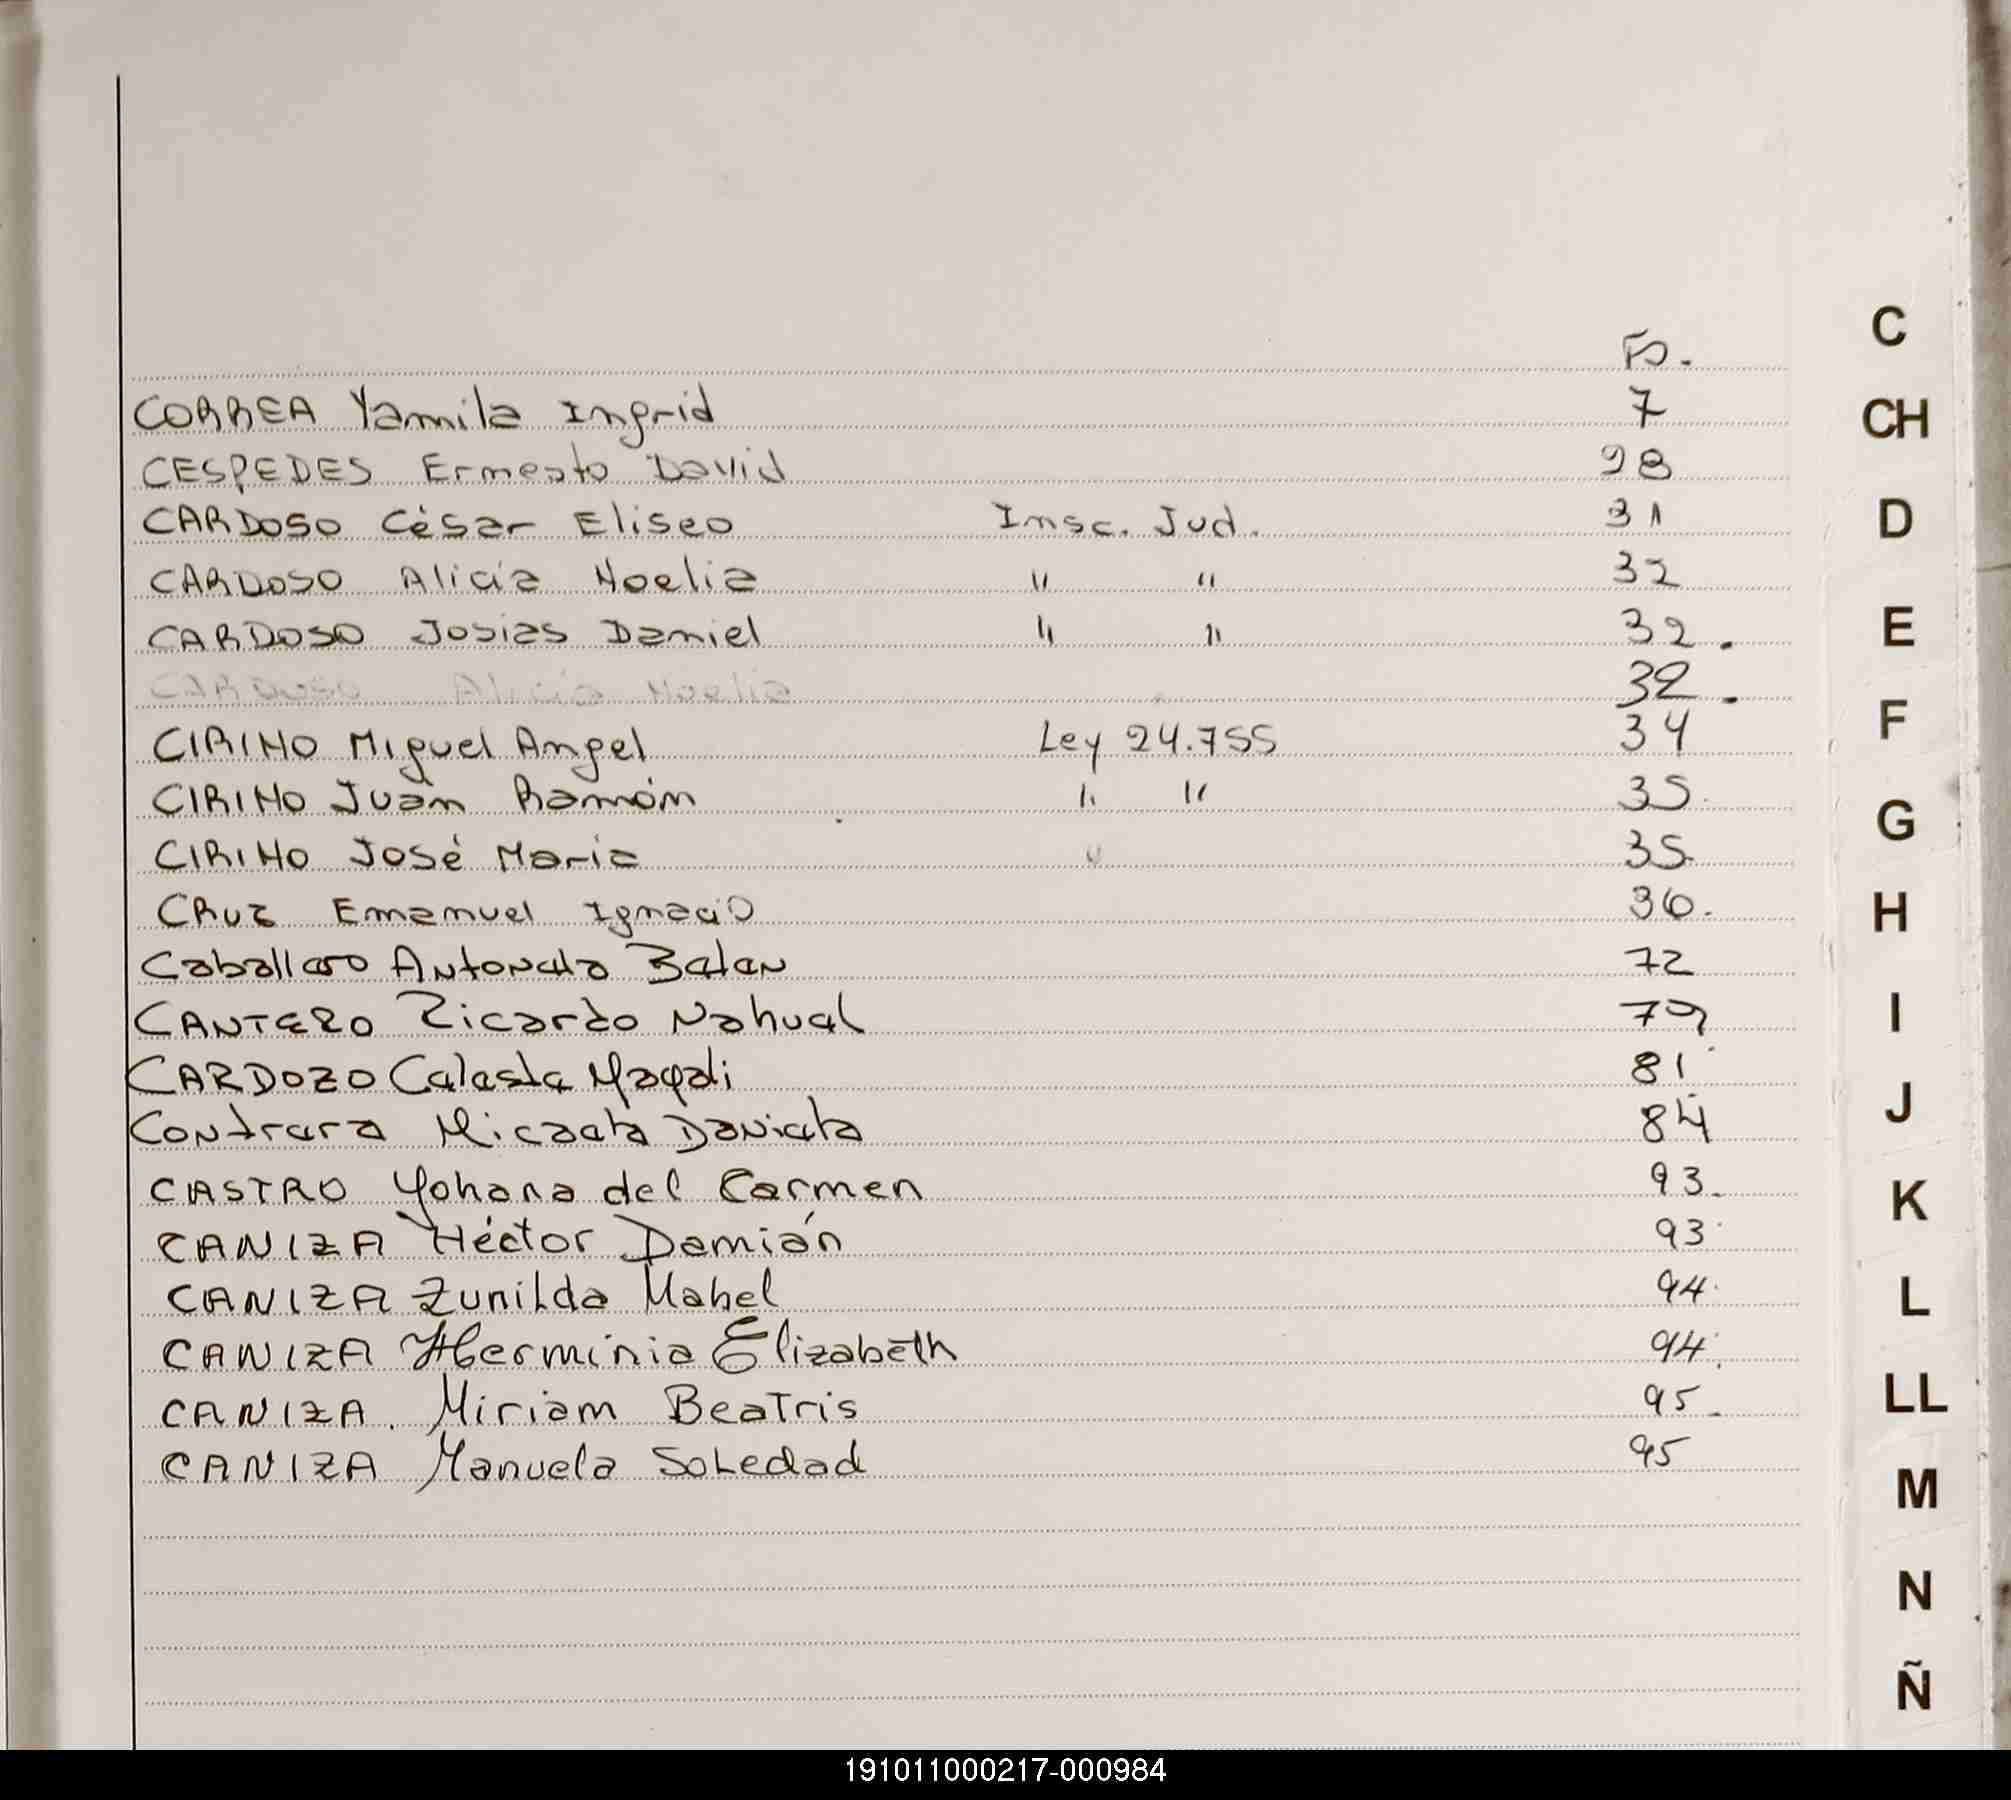 Fo.
CORREA Yamila Ingrid 7
CESPEDES Ernesto David 28
CARDOSO César Eliseo Insc. Jud. 31
CARDOSO Alicia Noelia " " 32
CARDOSO Josias Daniel " " 32.
CARDOSO Alicia Noelia 32.
CIRINO Miguel Angel Ley 24.755 34
CIRINO Juan Ramón " " 35.
CIRINO José Maria " 35.
CRUZ Emanuel Ignacio 36.
Caballero Antonela Belen 72
CANTERO Ricardo Nahuel 79
CARDOZO Celeste Magali 81
Contrera Micaela Daniela 84
CASTRO Yohana del Carmen 93.
CANIZA Héctor Damián 93
CANIZA Zunilda Mabel 94.
CANIZA Herminia Elizabeth 94.
CANIZA. Miriam Beatris 95.
CANIZA Manuela Soledad 95
C
CH
D
E
F
G
H
I
J
K
L
LL
M
N
Ñ
191011000217-000984